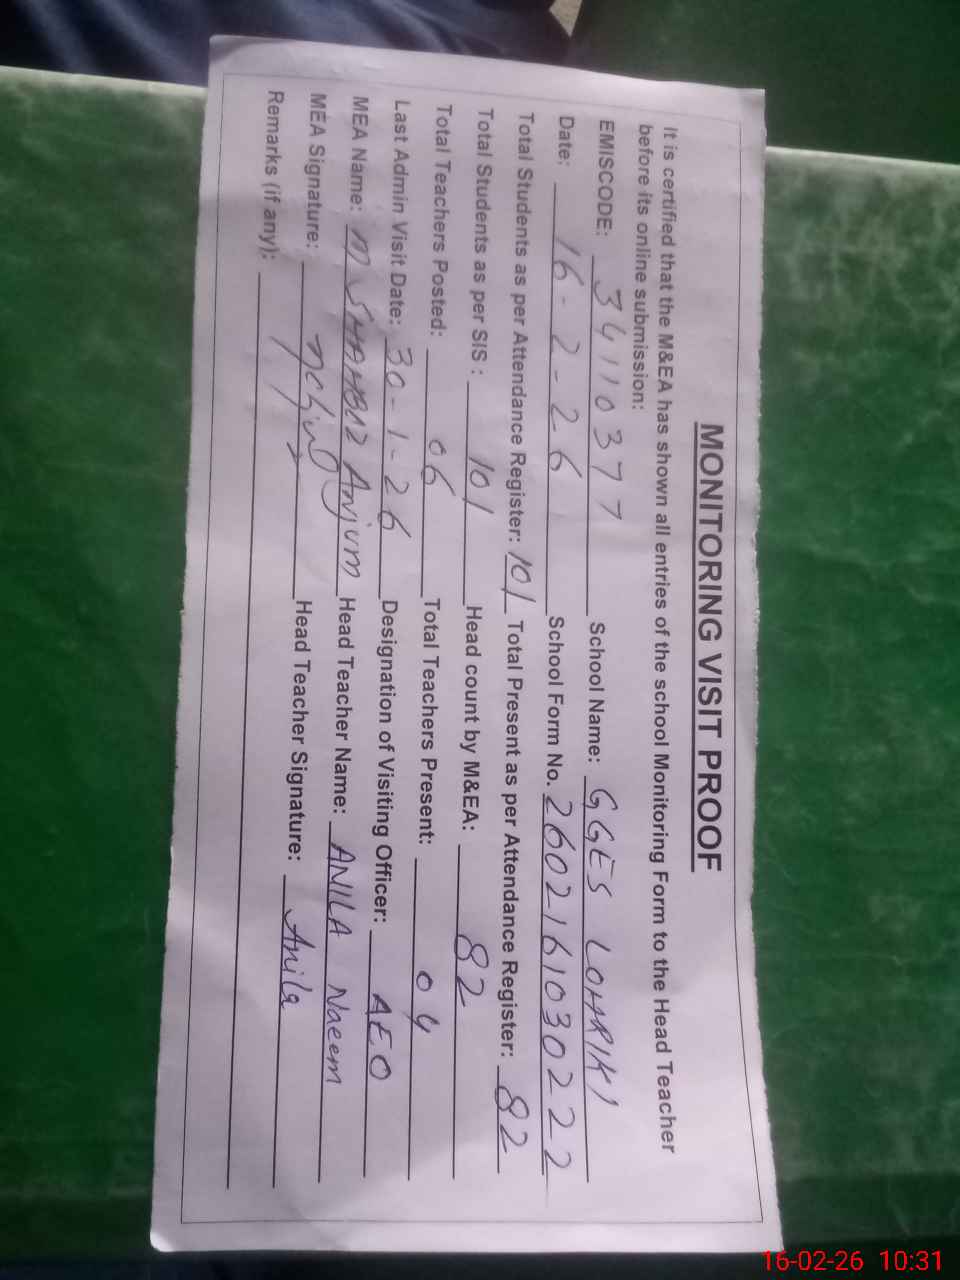 MONITORING VISIT PROOF
It is certified that the M&EA has shown all entries of the school Monitoring Form to the Head Teacher
before its online submission:
EMISCODE: 34110377 School Name: GGES LOHARIKI
Date: 16-2-26 School Form No. 2602161030222
Total Students as per Attendance Register: 101 Total Present as per Attendance Register: 82
Total Students as per SIS : 101 Head count by M&EA: 82
Total Teachers Posted: 06 Total Teachers Present: 04
Last Admin Visit Date: 30-1-26 Designation of Visiting Officer: AEO
MEA Name: M SHAHBAZ Anjum Head Teacher Name: ANILA Naeem
MEA Signature: Head Teacher Signature: Anila
Remarks (if any):
16-02-26 10:31